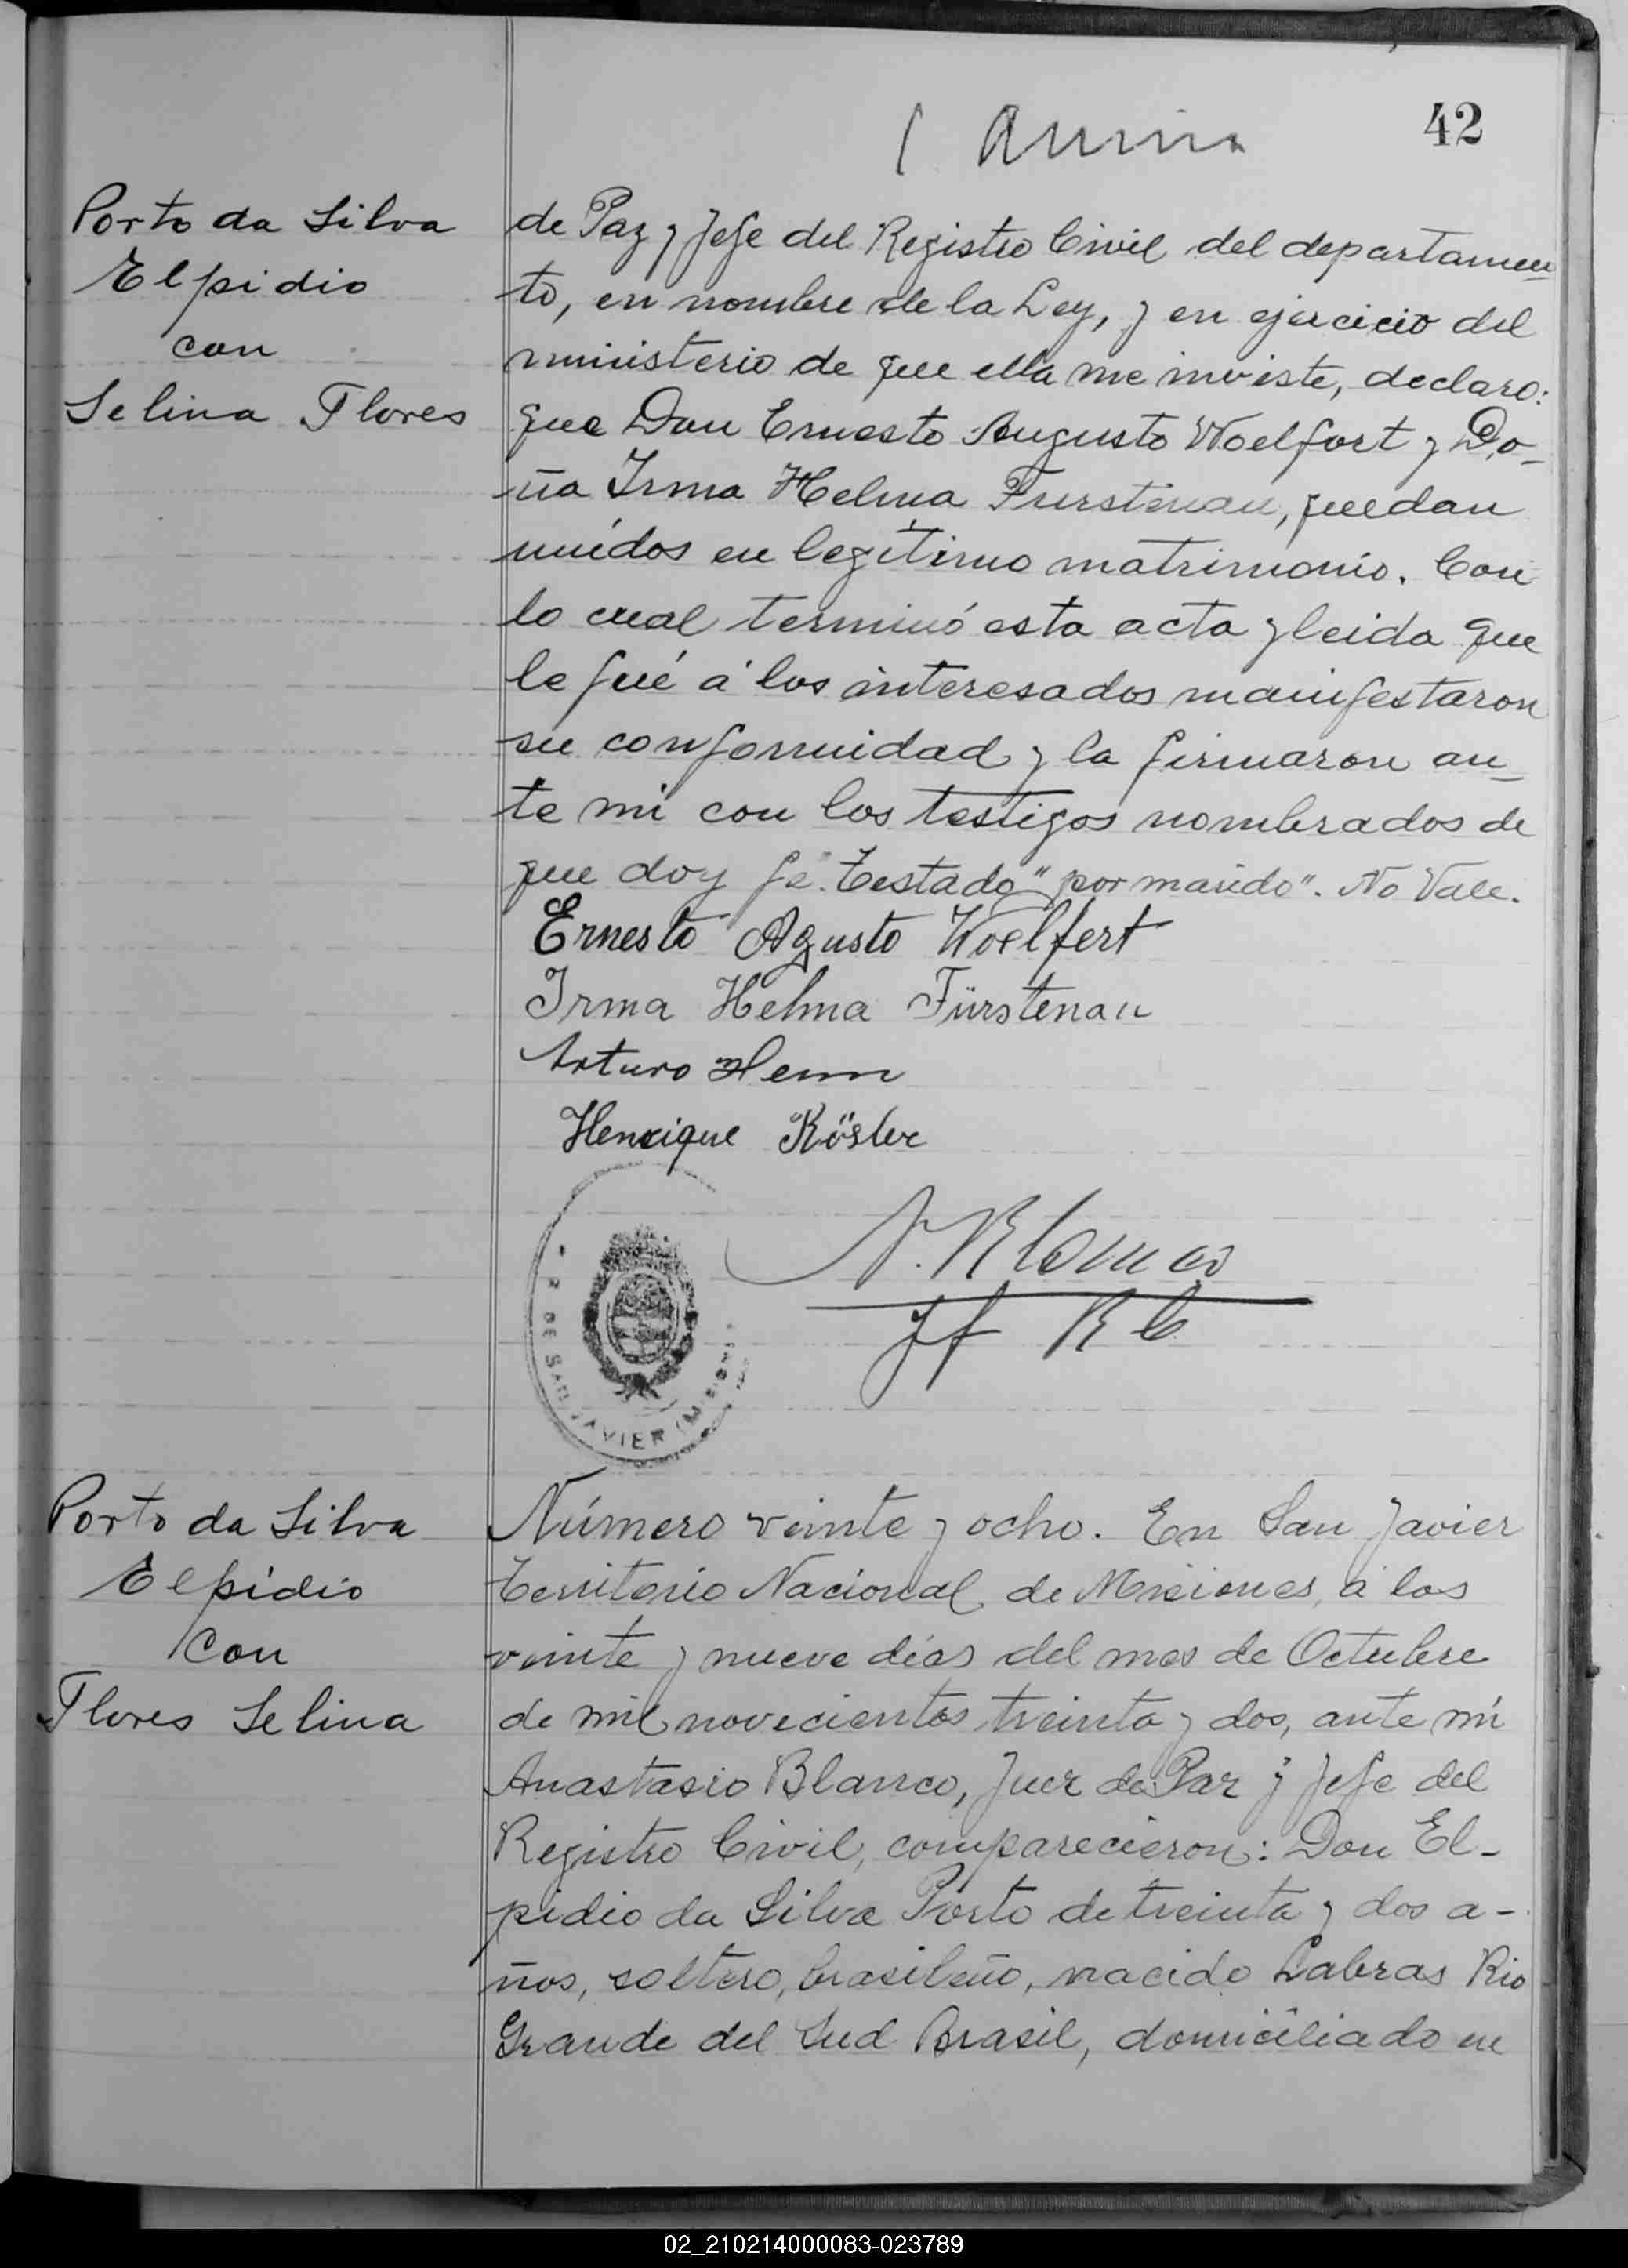 42
Porto da Silva
Elpidio
con
Selina Flores
de Paz y Jefe del Registro Civil del departamen
to, en nombre de la Ley, y en ejercicio del
ministerio de que ella me inviste, declaro:
que Don Ernesto Augusto Woelfort y Do-
ña Irma Helma Furstenau, quedan
unidos en legítimo matrimonio. Con
lo cual terminó esta acta y leida que
le fué á los interesados manifestaron
su conformidad y la firmaron an-
te mi con los testigos nombrados de
que doy fé. Testado "por marido". No Vale.
Ernesto Agusto Woelfert
Irma Helma Fürstenau
Arturo Henn
Henrique Rösler
A. Blanco
Jf RC
DE SAN JAVIER (MISIONES
Porto da Silva
Elpidio
Con
Flores Selina
Número veinte y ocho. En San Javier
Territorio Nacional de Misiones, á los
veinte y nueve días del mes de Octubre
de mil novecientos treinta y dos, ante mí
Anastasio Blanco, Juez de Paz y Jefe del
Registro Civil, comparecieron: Don El-
pidio da Silva Porto de treinta y dos a-
ños, soltero, brasileño, nacido Labras Rio
Grande del Sud Brasil, domiciliado en
02_210214000083-023789